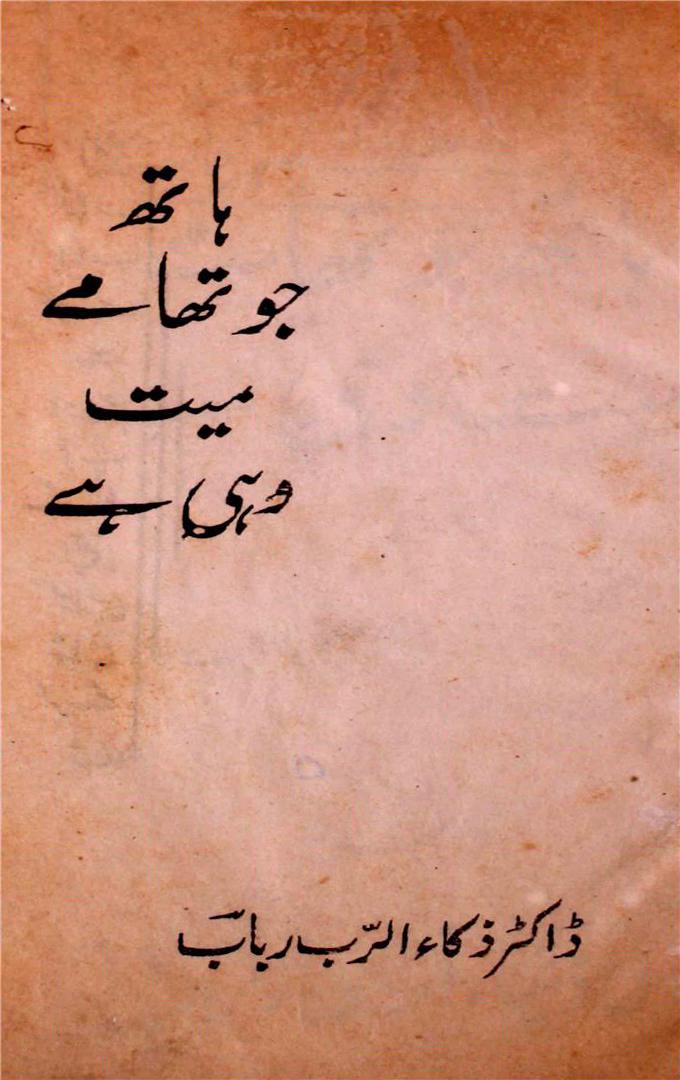 ہاتھ
جو تھامے
میت
وہی ہے
ڈاکٹر ذکاء الرّب ربابؔ